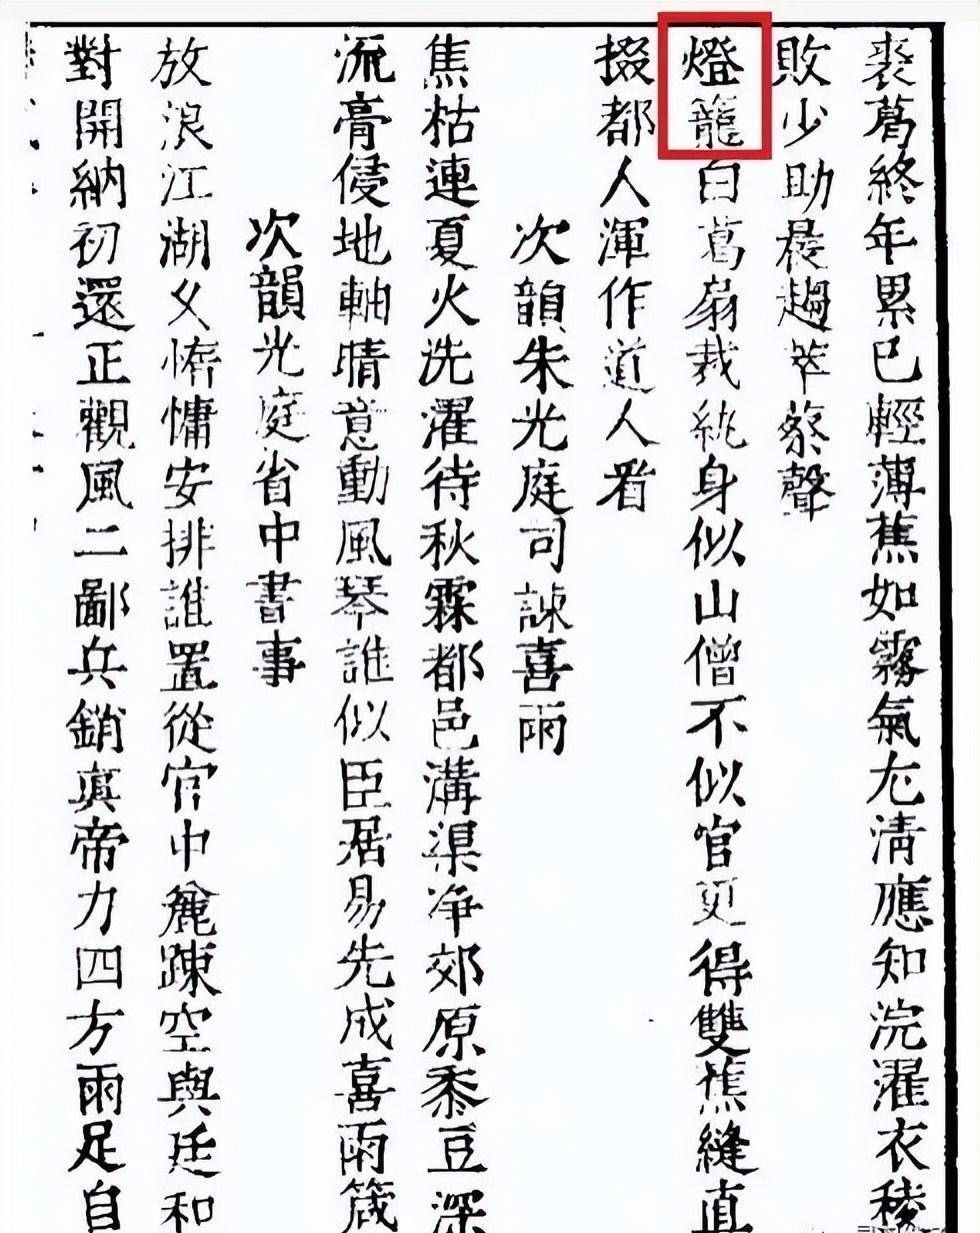 裘葛終年累已輕薄蕉如霧氣尤清應知浣濯衣稜
敗少助晨趨萃蔡聲
燈籠白葛扇裁紈身似山僧不似官更得雙蕉縫直
掇都人渾作道人看
次韻朱光庭司諫喜雨
焦枯連夏火洗濯待秋霖都邑溝渠净郊原黍豆深
流膏侵地軸晴意動風琴誰似臣居易先成喜雨箴
次韻光庭省中書事
放浪江湖久惰慵安排誰置從官中麄踈空與廷和
對開納初還正觀風二鄙兵銷真帝力四方雨足自